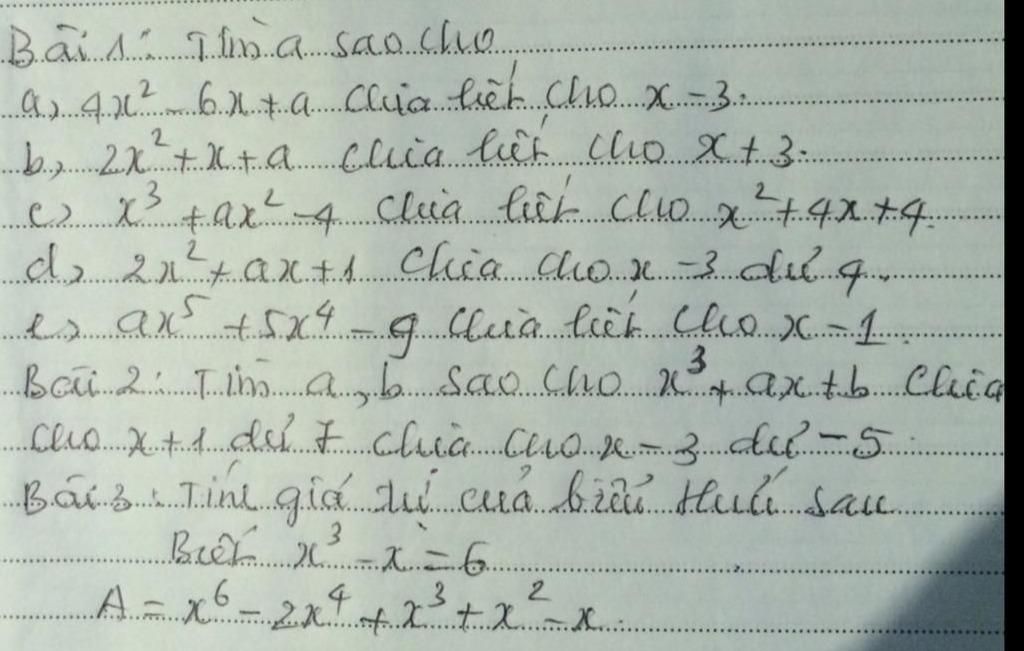 Bài 1: Tìm a sao cho
a, 4x² - 6x + a chia hết cho x - 3.
b, 2x² + x + a chia hết cho x + 3.
c, x³ + ax² - 4 chia hết cho x² + 4x + 4.
d, 2x² + ax + 1 chia cho x - 3 dư 4.
e, ax⁵ + 5x⁴ - 9 chia hết cho x - 1.
Bài 2: Tìm a, b sao cho x³ + ax + b chia
cho x + 1 dư 7 chia cho x - 3 dư - 5.
Bài 3: Tính giá trị của biểu thức sau
Biết x³ - x = 6
A = x⁶ - 2x⁴ + x³ + x² - x.